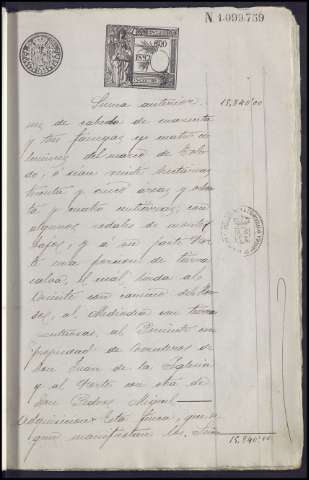 N 1.099.759
Suma anterior 15,840'00
no de cabida de cuarenta
y tres fanegas y cuatro ce
lemines del marco de Tole
do, ó sean veinte hectareas
treinta y cinco areas y ochen
ta y cuatro centiareas, con
algunos rodales de monte
bajo, y a su parte Nor
te una porcion de tierra
calva, el cual linda al
Oriente con camino de
al Mediodia con tierra
al Poniente con
propiedad de herederos de
Don Juan de la Iglesia
y al Norte con otra de
Don Pedro Miguel
Adquisicion Esta finca, que se
gun manifiestan los Seño
15,840'00